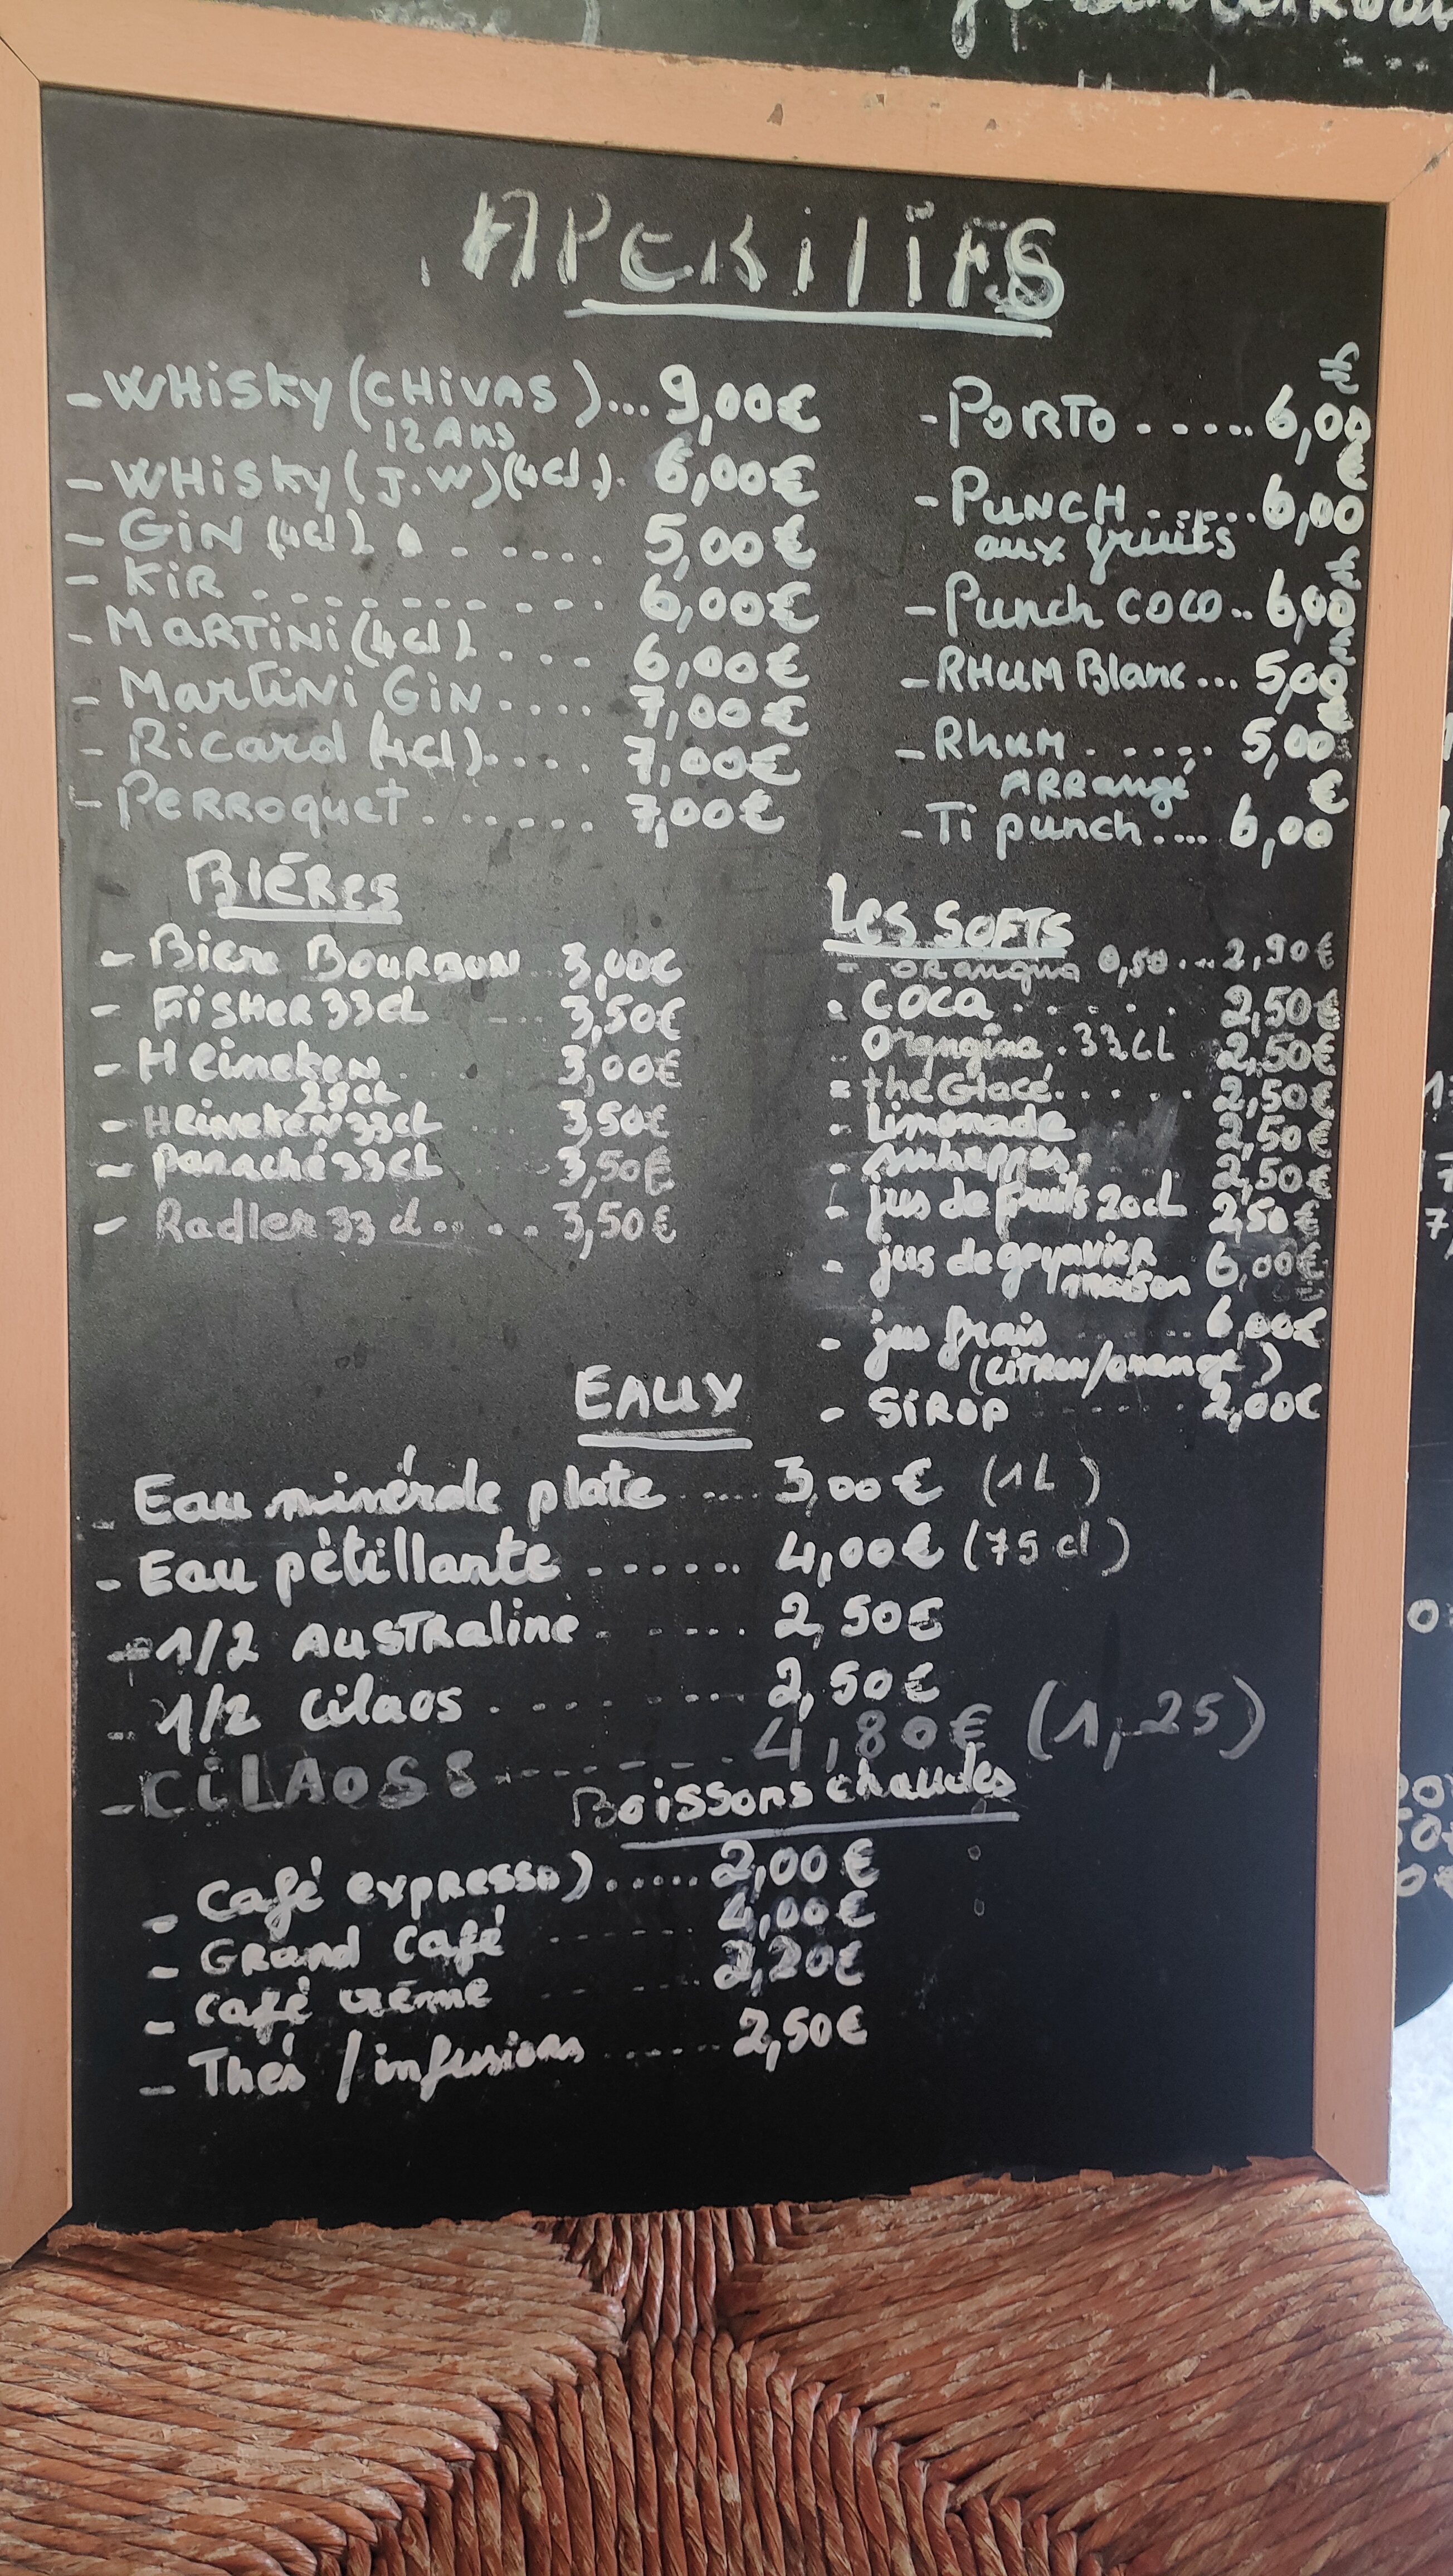 APERITIFS
- WHisky (CHiVAS)... 9,00€
12 Ans
- WHisky (J.W) (4cl). 6,00€
- GiN (4cl) . . . . . 5,00€
- KiR . . . . . . . . . . 6,00€
- MaRTiNi (4cl) . . . . 6,00€
- MartiNi GiN . . . . 7,00€
- Ricard (4cl) . . . . 7,00€
- PeRRoquet . . . . . . 7,00€
- PORTO . . . . . 6,00€
- PuNCH . . . . . 6,00€
aux fruits
- Punch coco.. 6,00€
- RHuM Blanc ... 5,00€
- Rhum . . . . . 5,00€
ARRangé
- Ti punch .... 6,00€
BiÉRes
- Biere BouRBoN 3,00€
- FisHeR 33cl ... 3,50€
- Heineken 3,00€
25cl
- HeiNekeN 33cl 3,50€
- panaché 33cl ... 3,50€
- Radler 33 cl.. . . . 3,50€
Les SOFTS
- ORangina 0,50 ... 2,90€
- COCA . . . . . . 2,50€
- Orangina . 33CL 2,50€
- thé Glacé. . . . . 2,50€
- Limonade 2,50€
- 2,50€
- jus de fruits 20cl 2,50€
- jus de goyavier 6,00€
maison
- jus frais ........ 6,00€
(citron/orange)
- SiROP ........ 2,00€
EAUX
- Eau minérale plate ..... 3,00€ (1L)
- Eau pétillante ....... 4,00€ (75 cl)
- 1/2 AuSTRaline . ..... 2,50€
- 1/2 Cilaos . . . . . ... 2,50€
- CiLAOS 8 - - - - - - - - 4,80€ (1,25)
Boissons chaudes
- Café expResso)..... 2,00€
- GRand Café ...... 4,00€
- café crème ..... 2,20€
- Thés / infusions ...... 2,50€